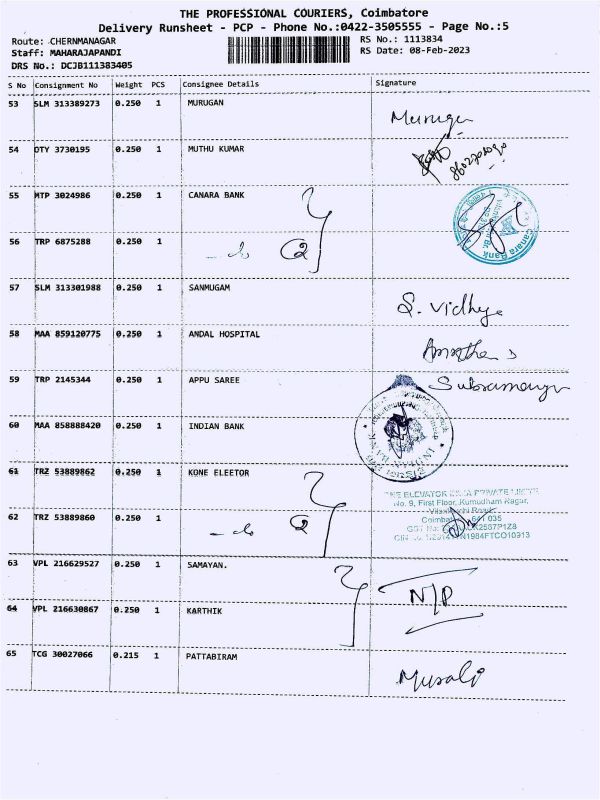 THE PROFESSIONAL COURIERS, Coimbatore
Delivery Runsheet - PCP - Phone No.:0422-3505555 - Page No.:5
Route: CHERNMANAGAR RS No.: 1113834
Staff: MAHARAJAPANDI RS Date: 08-Feb-2023
DRS No.: DCJB111383405
S No Consignment No Weight PCS Consignee Details Signature
53 SLM 313389273 0.250 1 MURUGAN Murugan
54 DTY 3730195 0.250 1 MUTHU KUMAR
55 MTP 3024986 0.250 1 CANARA BANK Canara Bank
56 TRP 6875288 0.250 1 - do 2
57 SLM 313301988 0.250 1 SANMUGAM S. Vidhya
58 MAA 859120775 0.250 1 ANDAL HOSPITAL
59 TRP 2145344 0.250 1 APPU SAREE
60 MAA 858888420 0.250 1 INDIAN BANK
61 TRZ 53889862 0.250 1 KONE ELEETOR
No. 9, First Floor, Kumudham Nagar,
62 TRZ 53889860 0.250 1 - do 2
63 VPL 216629527 0.250 1 SAMAYAN. N/P
64 VPL 216630867 0.250 1 KARTHIK
65 TCG 30027066 0.215 1 PATTABIRAM Murali